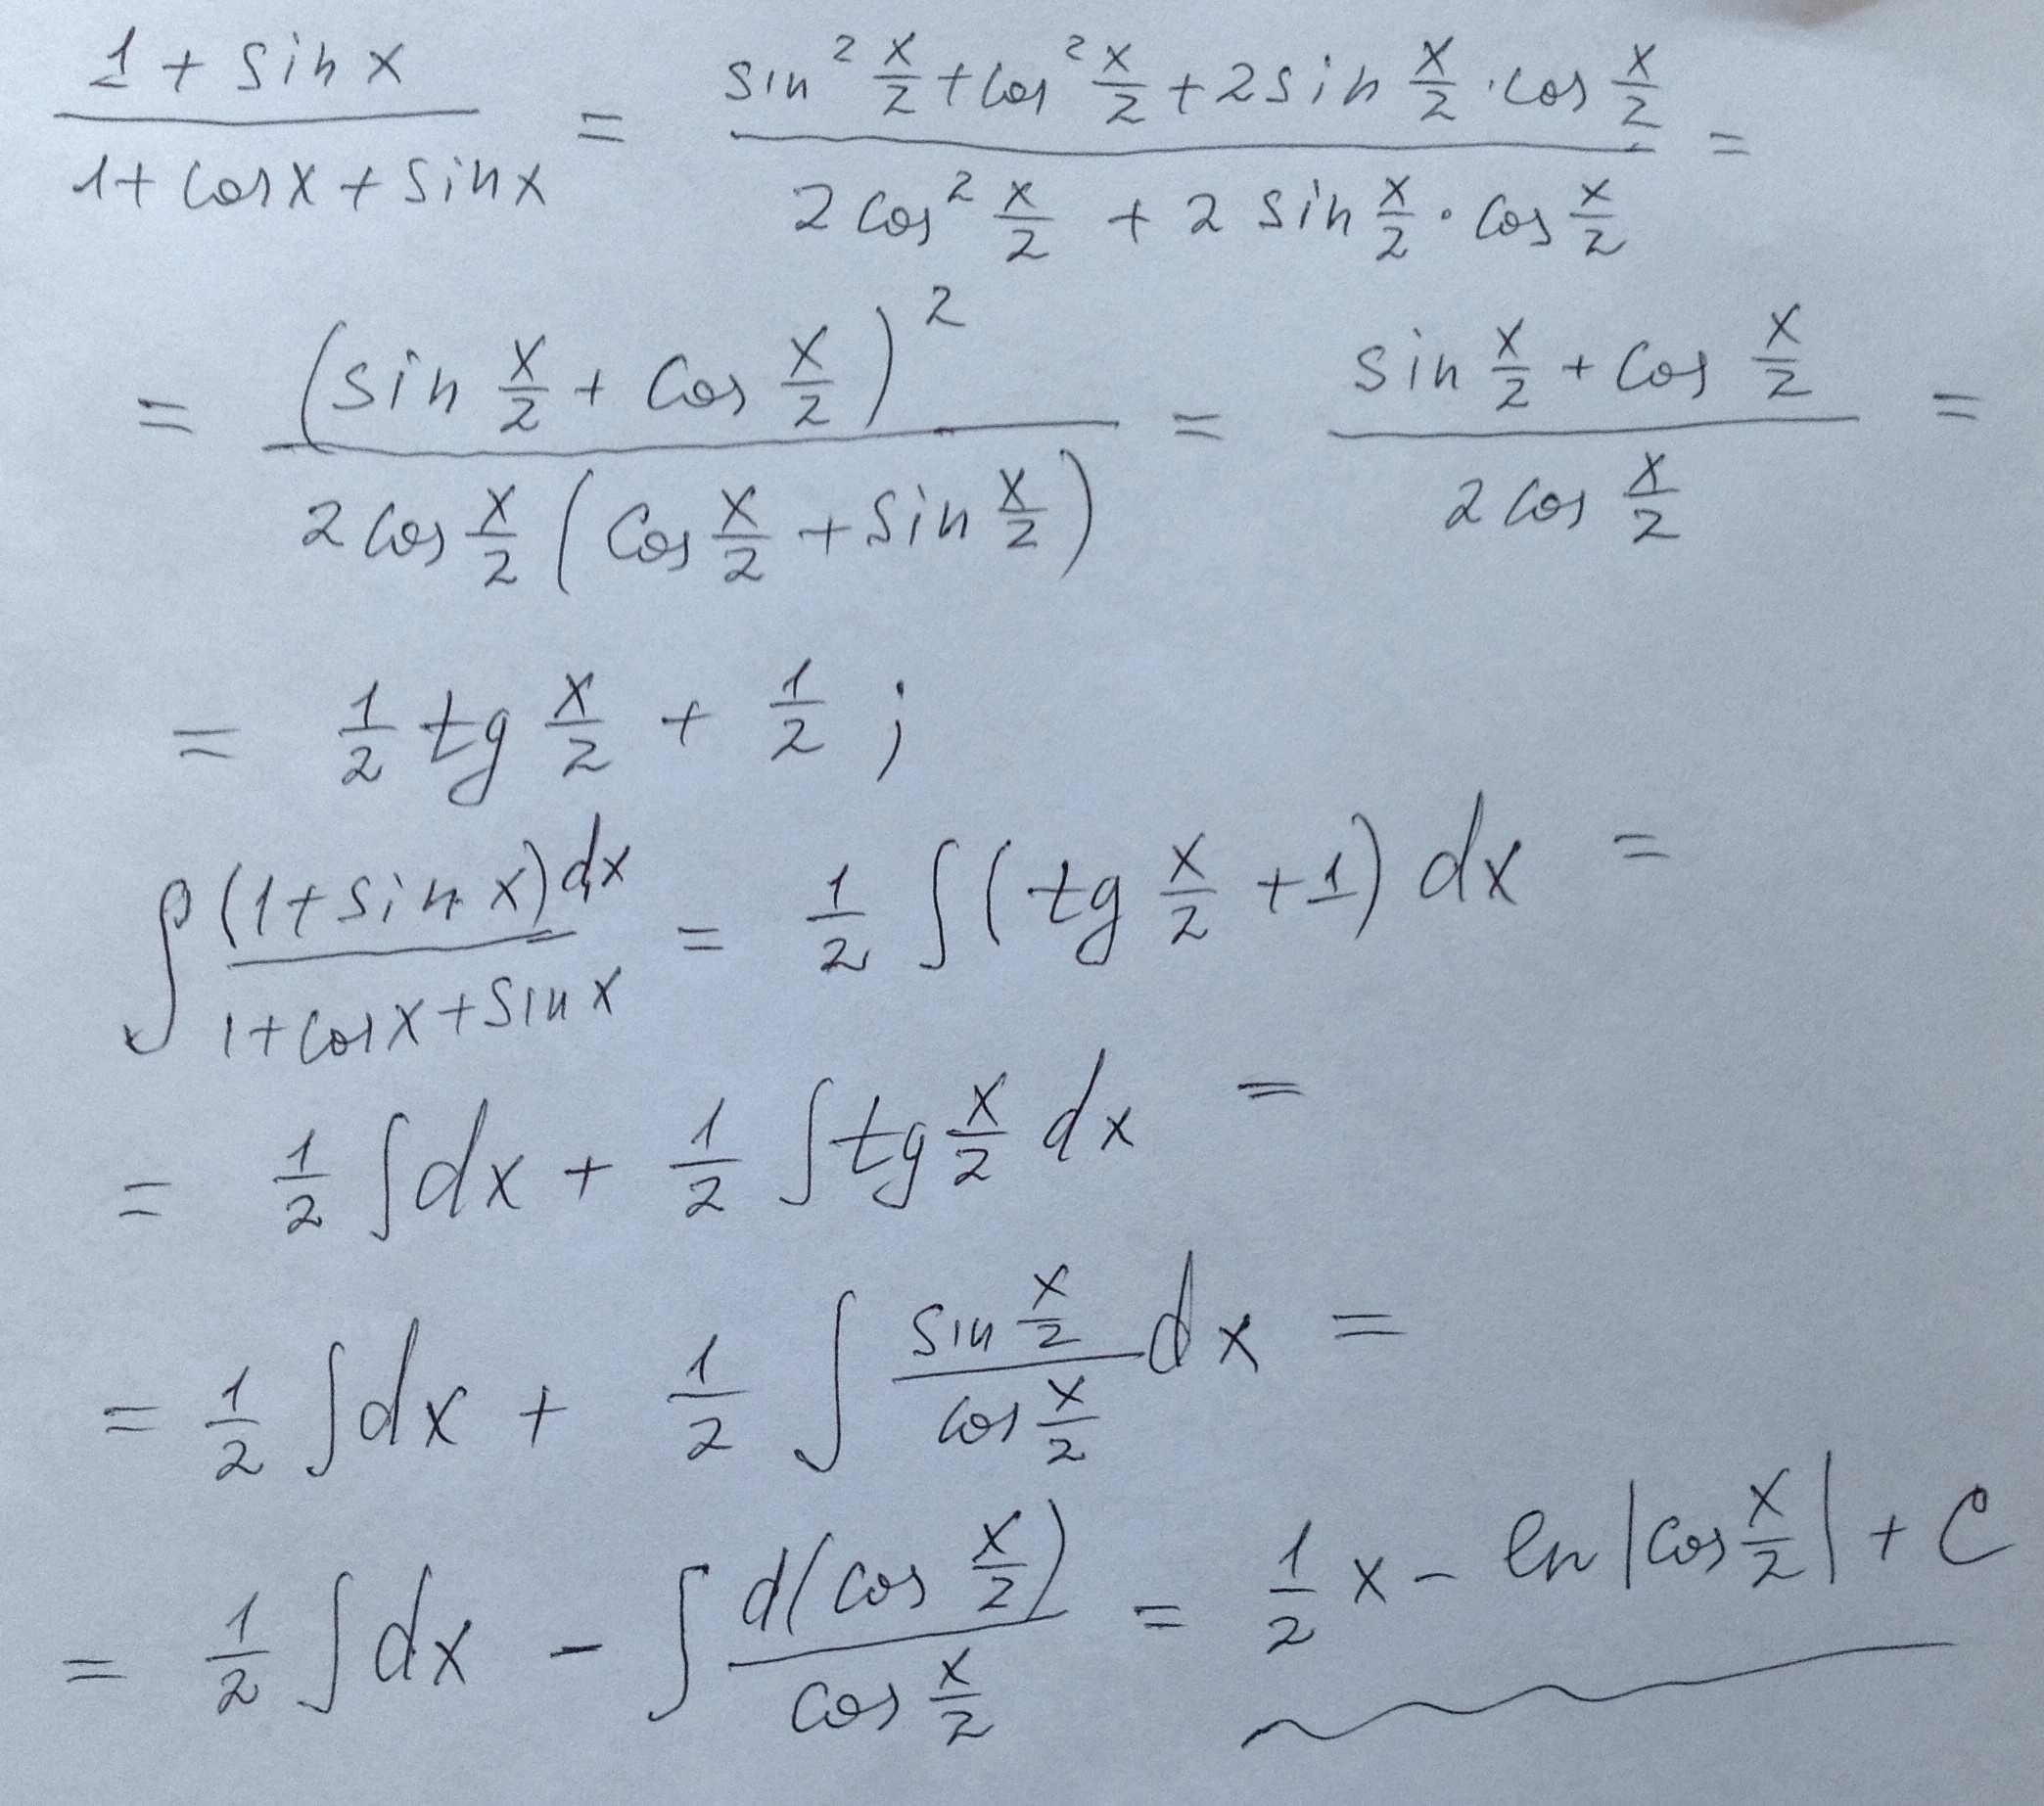 (1 + sin x)/(1 + cos x + sin x) = (sin² x/2 + cos² x/2 + 2 sin x/2 · cos x/2)/(2 cos² x/2 + 2 sin x/2 · cos x/2) =
= (sin x/2 + cos x/2)²/(2 cos x/2 (cos x/2 + sin x/2)) = (sin x/2 + cos x/2)/(2 cos x/2) =
= 1/2 tg x/2 + 1/2 ;
∫ (1 + sin x) dx/(1 + cos x + sin x) = 1/2 ∫ (tg x/2 + 1) dx =
= 1/2 ∫ dx + 1/2 ∫ tg x/2 dx =
= 1/2 ∫ dx + 1/2 ∫ (sin x/2)/(cos x/2) dx =
= 1/2 ∫ dx − ∫ d(cos x/2)/(cos x/2) = 1/2 x − ln |cos x/2| + C